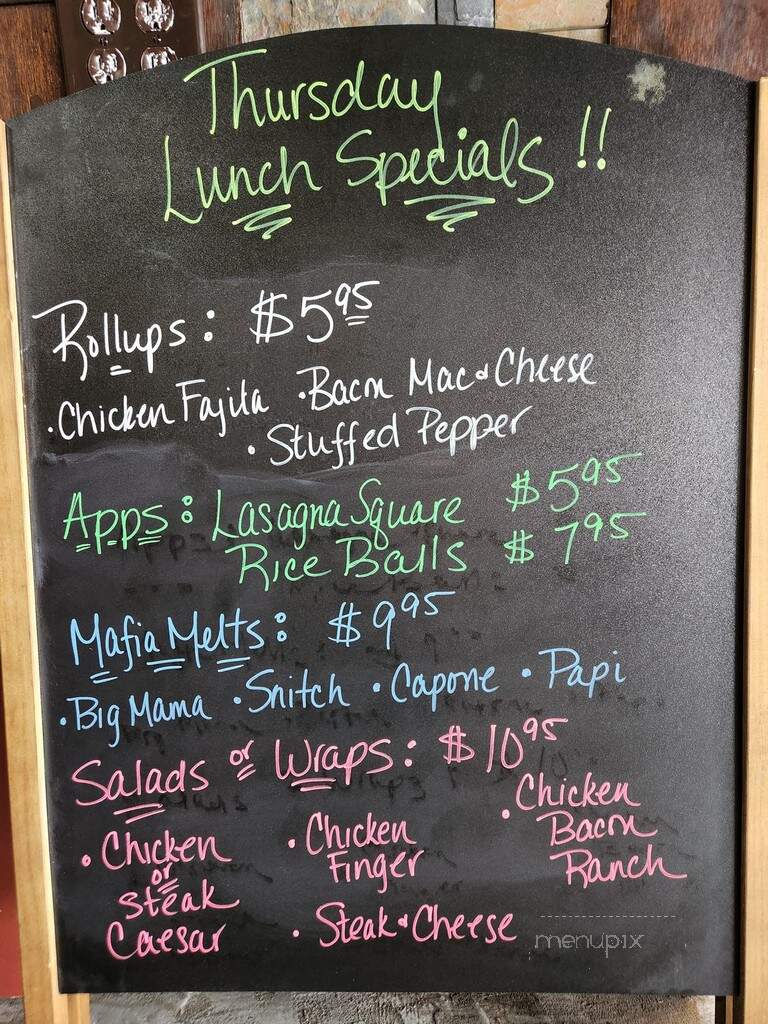 Thursday
Lunch Specials !!
Rollups: $5.95
· Chicken Fajita · Bacon Mac & Cheese
· Stuffed Pepper
Apps: Lasagna Square $5.95
Rice Balls $7.95
Mafia Melts: $9.95
· Big Mama · Snitch · Capone · Papi
Salads or Wraps: $10.95
· Chicken
or
Steak
Caesar
· Chicken
Finger
· Chicken
Bacon
Ranch
· Steak & Cheese
menupix